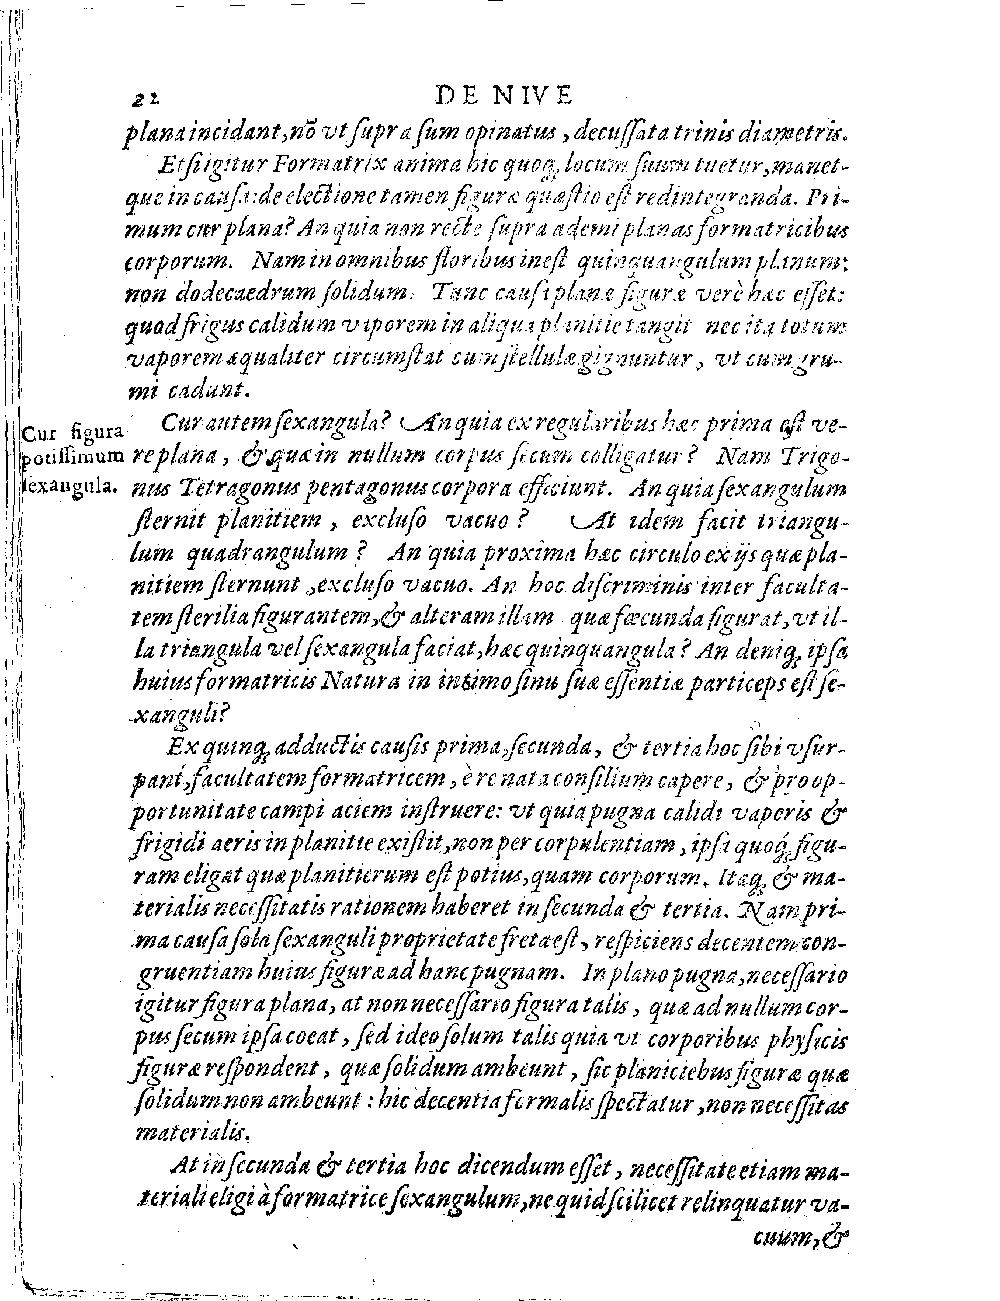 22 DE NIVE
plana incidant, nō vt supra sum opinatus, decussata trinis diametris.
Etsi igitur Formatrix anima hic quoq; locum suum tuetur, manet-
que in causa: de electione tamen figuræ quæstio est redintegranda. Pri-
mum cur plana? An quia non recte supra ademi planas formatricibus
corporum. Nam in omnibus floribus inest quinquangulum planum:
non dodecaedrum solidum. Tunc causa planæ figuræ verè hæc esset:
quod frigus calidum vaporem in aliqua planitie tangit nec ita totum
vaporem æqualiter circumstat cum stellulæ gignuntur, vt cum gru-
mi cadunt.
Cur figura
potissimum
sexangula.
Cur autem sexangula? An quia ex regularibus hæc prima est ve-
re plana, & quæ in nullum corpus secum colligatur? Nam Trigo-
nus Tetragonus pentagonus corpora efficiunt. An quia sexangulum
sternit planitiem, excluso vacuo? At idem facit triangu-
lum quadrangulum? An quia proxima hæc circulo ex ijs quæ pla-
nitiem sternunt, excluso vacuo. An hoc discriminis inter faculta-
tem sterilia figurantem, & alteram illam quæ fœcunda figurat, vt il-
la triangula vel sexangula faciat, hæc quinquangula? An deniq; ipsa
huius formatricis Natura in intimo sinu suæ essentiæ particeps est se-
xanguli?
Ex quinq; adductis causis prima, secunda, & tertia hoc sibi vsur-
pant, facultatem formatricem, è re nata consilium capere, & pro op-
portunitate campi aciem instruere: vt quia pugna calidi vaporis &
frigidi aeris in planitie existit, non per corpulentiam, ipsa quoq; figu-
ram eligat quæ planitierum est potius, quam corporum. Itaq; & ma-
terialis necessitatis rationem haberet in secunda & tertia. Nam pri-
ma causa sola sexanguli proprietate freta est, respiciens decentem con-
gruentiam huius figuræ ad hanc pugnam. In plano pugna, necessario
igitur figura plana, at non necessario figura talis, quæ ad nullum cor-
pus secum ipsa coeat, sed ideo solum talis quia vt corporibus physicis
figuræ respondent, quæ solidum ambeunt, sic planiciebus figuræ quæ
solidum non ambeunt: hic decentia formalis spectatur, non necessitas
materialis.
At in secunda & tertia hoc dicendum esset, necessitate etiam ma-
teriali eligi à formatrice sexangulum, ne quid scilicet relinquatur va-
cuum, &